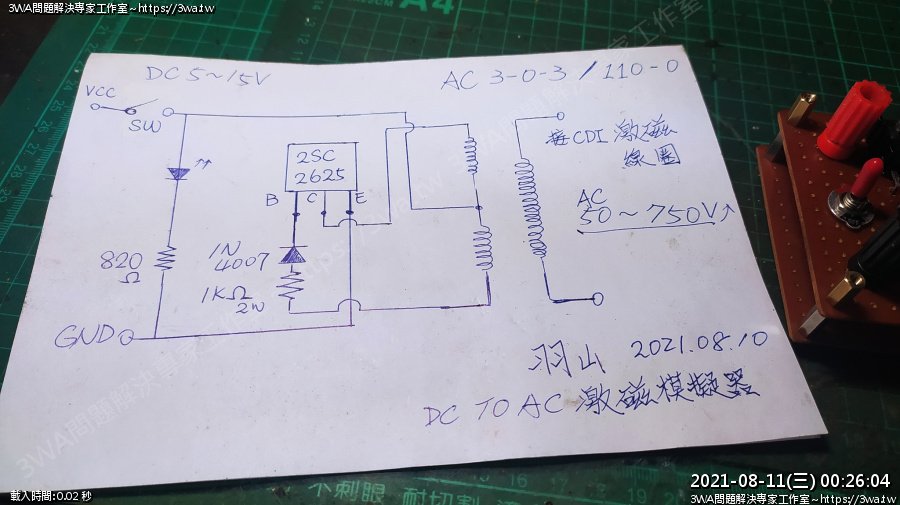 3WA問題解決專家工作室~https://3wa.tw
A4
DC 5~15V
AC 3-0-3 / 110-0
VCC
SW
2SC
2625
B C E
接CDI 激磁
線圈
AC
50~750V
820
Ω
1N
4007
1KΩ
2W
GND
羽山 2021.08.10
DC TO AC 激磁模擬器
不刺眼 耐切割
載入時間:0.02 秒
2021-08-11(三) 00:26:04
3WA問題解決專家工作室~https://3wa.tw